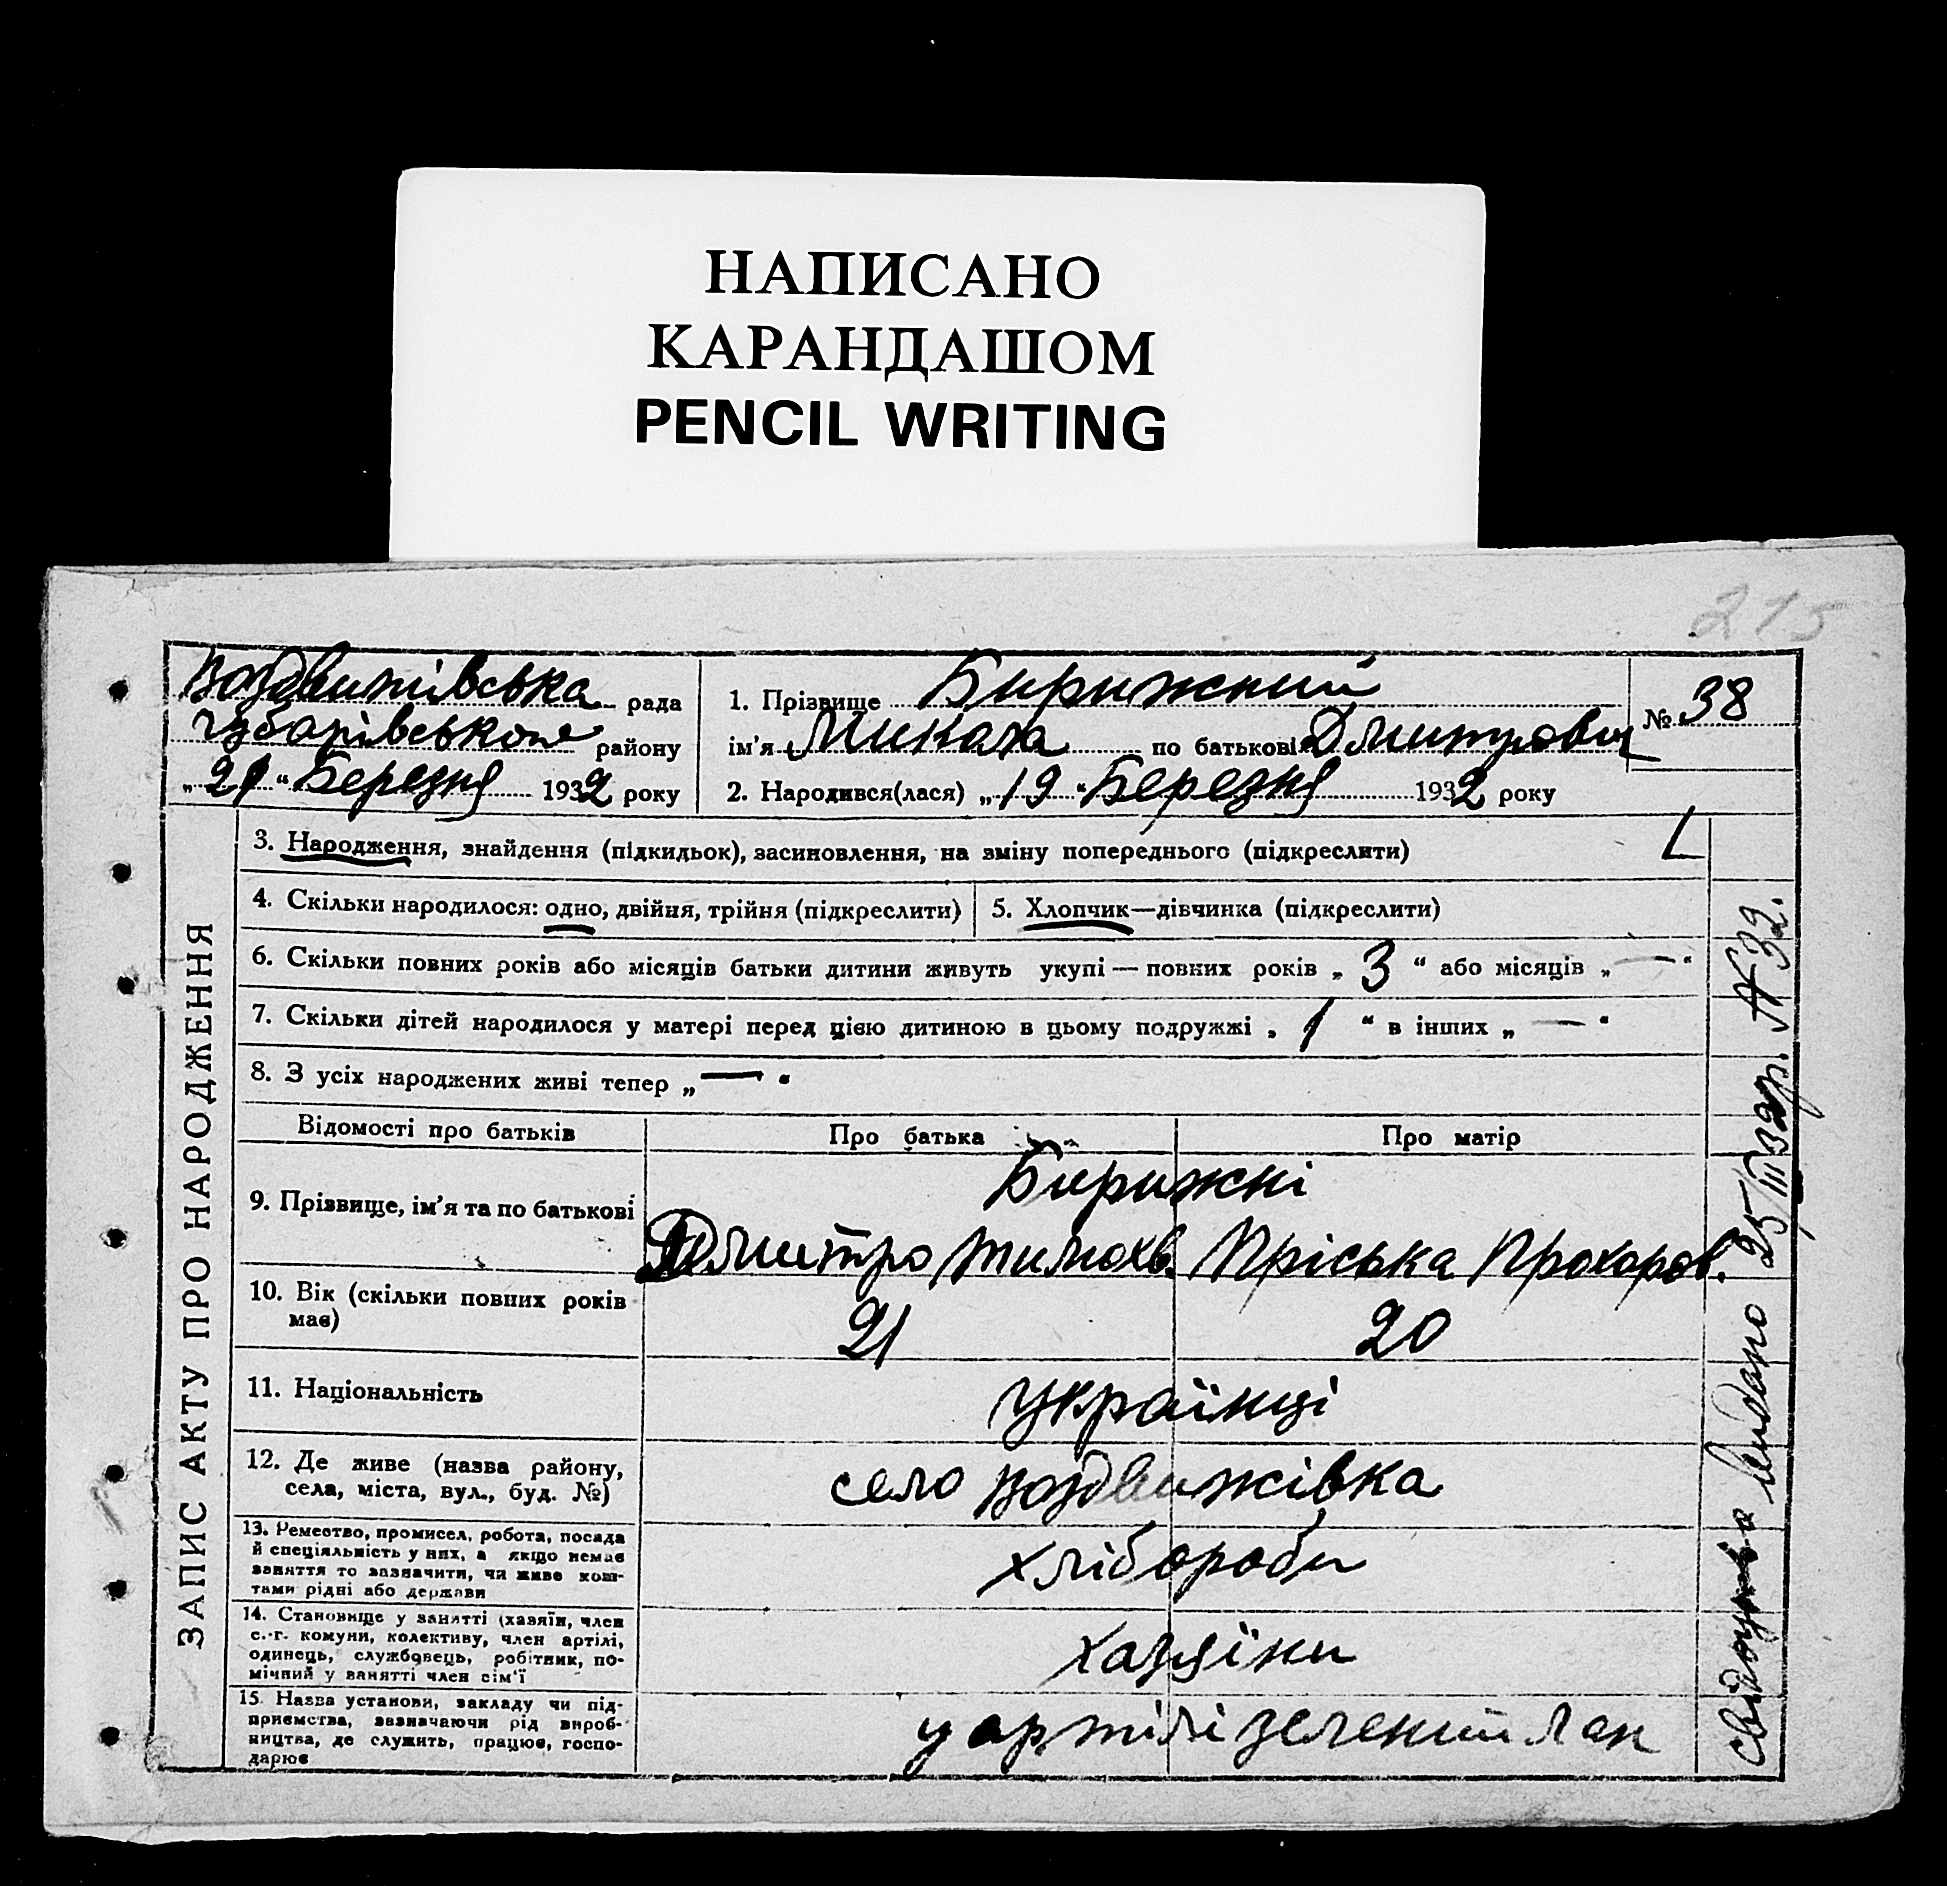 НАПИСАНО
КАРАНДАШОМ
PENCIL WRITING
215
Воздвижівська рада
Губарівського району
„21“ Березня 1932 року
1. Прізвище Бирижний
ім'я Микола по батькові Дмитрович
2. Народився(лася) „19“ Березня 1932 року
№ 38
ЗАПИС АКТУ ПРО НАРОДЖЕННЯ
3. Народження, знайдення (підкидьок), засиновлення, на зміну попереднього (підкреслити)
4. Скільки народилося: одно, двійня, трійня (підкреслити)
5. Хлопчик—дівчинка (підкреслити)
6. Скільки повних років або місяців батьки дитини живуть укупі — повних років „ 3 “ або місяців „ — “
7. Скільки дітей народилося у матері перед цією дитиною в цьому подружжі „ 1 “ в інших „ — “
8. З усіх народжених живі тепер „ — “
Відомості про батьків
Про батька
Про матір
9. Прізвище, ім'я та по батькові
Бирижні
Дмитро Тимохв. Пріська Прохоров.
10. Вік (скільки повних років
має)
21
20
11. Національність
Українці
12. Де живе (назва району,
села, міста, вул., буд. №)
село Воздвижівка
13. Ремество, промисел, робота, посада
й спеціяльність у них, а якщо немає
заняття то зазначити, чи живе кош-
тами рідні або держави
хлібороби
14. Становище у занятті (хазяїн, член
с.-г. комуни, колективу, член артілі,
одинець, службовець, робітник, по-
мічний у занятті член сім'ї
хазяїни
15. Назва установи, закладу чи під-
приємства, зазначаючи рід вироб-
ництва, де служить, працює, госпо-
дарює
у артілі зелений Лан
Свідоцтво видано 25/III 32 р. № 32.